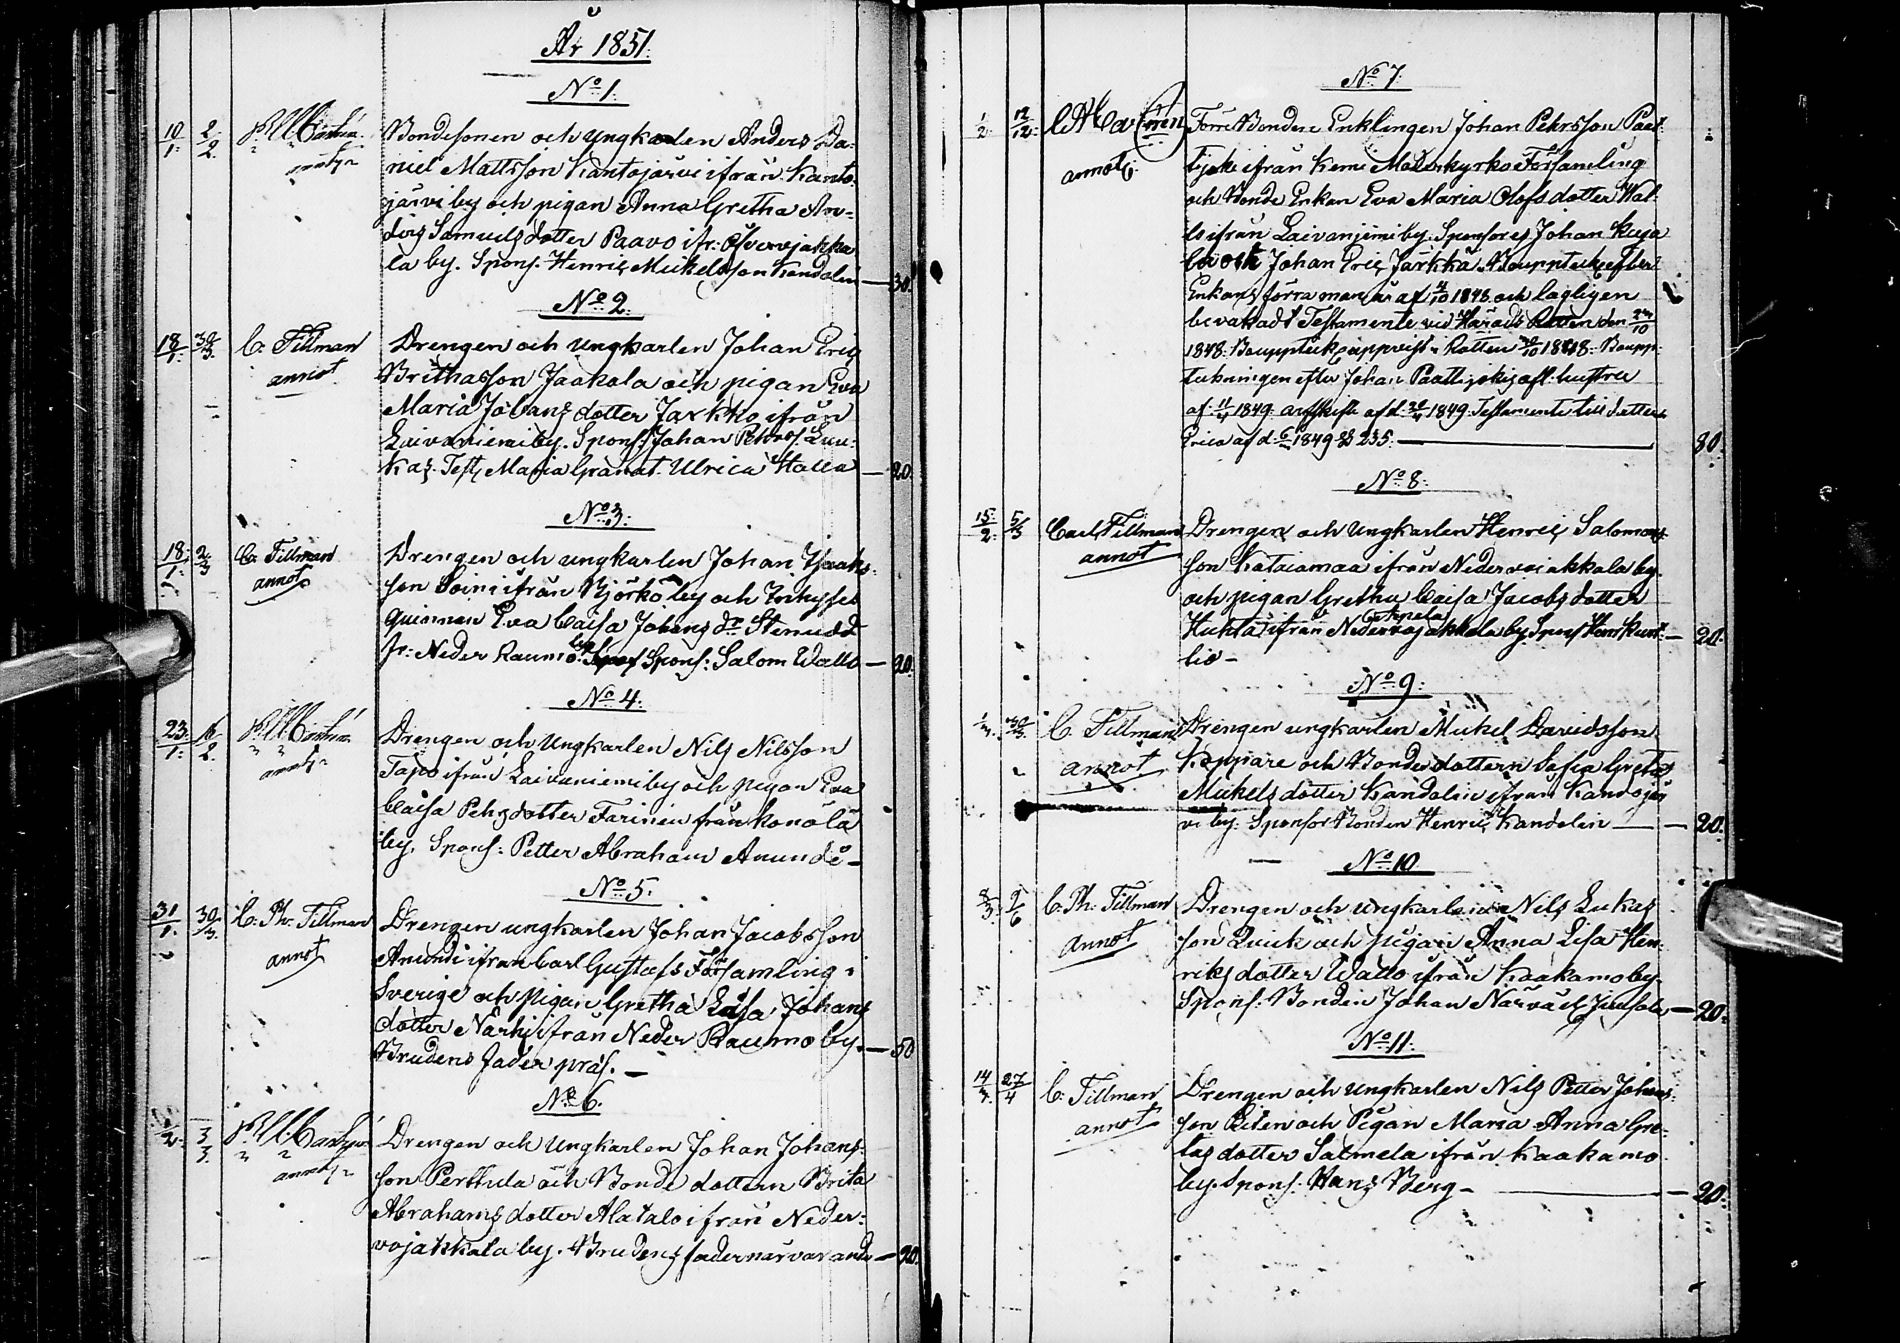 År 1851.
No 1.
10/1. 2/2. Bondesonen och Ungkarlen Anders Da-
annot niel Mattsson Kantojärvi ifrån Kanto-
järvi by och pigan Anna Gretha An-
ders Samuels dotter Paavo ifr: Öfvervojakka
la by. Spons. Henric Mickelsson Kandolin — 30.
No 2.
18/1. 30/3. C. Tillman Drengen och Ungkarlen Johan Eric
annot Brithasson Jaakola och pigan Eva
Maria Johans dotter Jarkko ifrån
Laivaniemi by. Spons: Johan Pehrss. Luu-
kas. Test, Maria Granat. Ulrica Halla — 20.
No 3.
18/1. 2/3 C. Tillman Drengen och ungkarlen Johan Isaaks-
annot son Soini ifrån Björkö by och Inhyses
quinnan Eva Caisa Johans dr Stenudd
fr: Neder Raumo by Spons: Salom Wallo — 20.
No 4.
23/1. 16/2. Drengen och Ungkarlen Nils Nilsson
annot Tapio ifrån Laivaniemi by och pigan Eva
Caisa Pehrs dotter Farinen från Konola
by. Spons: Petter Abraham Anundi —
No 5.
31/1. 30/3. C. Ph. Tillman Drengen ungkarlen Johan Jacobsson
annot Anundi ifrån Carl Gustafs Församling i
Sverige och pigan Gretha Lisa Johans
dotter Närhi ifrån Neder Raumo by. — 50
Brudens fader präs. —
No 6.
1/2. 3/3. Drengen och Ungkarlen Johan Johans-
annot son Perttula och Bonde dottern Brita
Abrahams dotter Alatalo ifrån Neder-
vojakkala by. Brudens fader närvarande — 20.
No 7.
1/2. 12/12. Förre Bonden Enklingen Johan Pehrsson Paat-
annot tijoki ifrån Kemi Moderkyrko Församling
och Bonde Enkan Eva Maria Olofs dotter Wal-
lo ifrån Laivaniemi by. Sponsores Johan Kuja
la och Johan Eric Jarkkä. Boupptekn. efter
Enkans förra man är af 4/10 1848 och lagligen
bevakadt Testamente vid Härads Rätten den 24/10
1848. Boupptekn. uppvist i Rätten 1848. Boupp-
tekningen efter Johan Paattijokis afl. hustru
af 11/4 1849. arfskifte af d. 1849. Testamente till dottern
Erica af d. 6/ 1849 § 235. — 80.
No 8.
15/2. 5/5 Carl Tillman Drengen och Ungkarlen Henric Salomons
annot son Kataiamaa ifrån Nedervoiakkala by.
och pigan Gretha Caisa Jacobs dotter
Huhta ifrån Nedervojakkala by. Spons Henr Kurt- — 20.
tio —
No 9.
1/3. 30/3. C. Tillman Drengen ungkarlen Mickel Davidsson
annot Keppare och Bonde dottern Sofia Greta
Mickels dotter Kandolin ifrån Kandojär
vi by. Sponsor Bonden Henric Kandolin — 20.
No 10.
8/3. 2/6 C. Ph. Tillman Drengen och Ungkarlen Nils Lukas
annot son Quick och pigan Anna Lisa Hen-
riks dotter Wallo ifrån Kaakamo by.
Spons: Bonden Johan Närvä — 20.
No 11.
14/3. 27/4 C. Tillman Drengen och Ungkarlen Nils Petter Johans-
annot son Piten och Pigan Maria Anna Gre-
tas dotter Salmela ifrån Kaakamo
by. Spons: Hans Berg — 20.